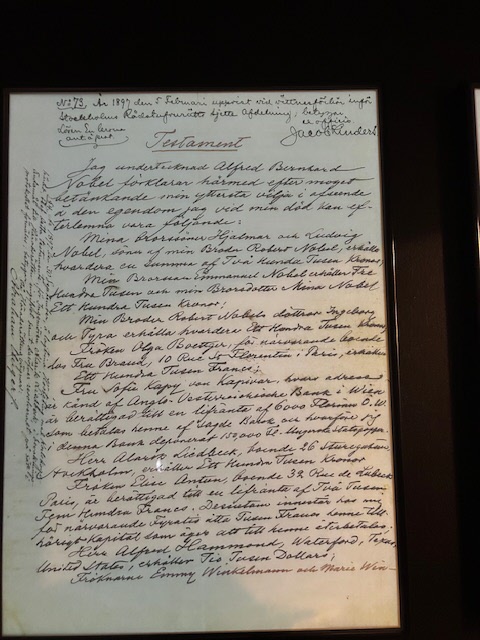 No 73. År 1897 den 5 Februari uppvist vid vittnesförhör inför
Stockholms Rådstufvurätts sjette Afdelning; betygar
Lösen En krona
ex officio
Testament
Jag undertecknad Alfred Bernhard
Nobel förklarar härmed efter moget
betänkande min yttersta vilja i afseende
å den egendom jag vid min död kan ef-
terlemna vara följande:
Mina Brorsöner Hjalmar och Ludvig
Nobel, söner af min Broder Robert Nobel, erhålla
hvardera en summa af Två Hundra Tusen Kronor;
Min Brorson Emmanuel Nobel erhåller Tre
Hundra Tusen och min Brorsdotter Mina Nobel
Ett Hundra Tusen Kronor;
Min Broder Robert Nobels döttrar Ingeborg
och Tyra erhålla hvardera Ett Hundra Tusen Kronor
Fröken Olga Boettger, för närvarande boende
hos Fru Brand, 10 Rue St Florentin i Paris, erhåller
Ett Hundra Tusen Francs;
Fru Sofie Kapy von Kapivar, hvars adress
är känd af Anglo-Oesterreichische Bank i Wien
är berättigad till en lifränta af 6000 Florins Ö.W.
som betalas henne af sagde Bank och hvarför jag
i denna Bank deponerat 150,000 Fl. i Ungerska statspapper
Herr Alarik Liedbeck, boende 26 Sturegatan,
Stockholm, erhåller Ett Hundra Tusen Kronor
Fröken Elise Antun, boende 32 Rue de Lubeck,
Paris, är berättigad till en lifränta af Två Tusen
Fem Hundra Francs. Dessutom innestår hos mig
för närvarande Fyratio åtta Tusen Francs henne till-
hörigt kapital som äger att till henne återbetalas;
Herr Alfred Hammond, Waterford, Texas,
United States, erhåller Tio Tusen Dollars;
Fröknarne Emmy Winkelmann och Marie Win-